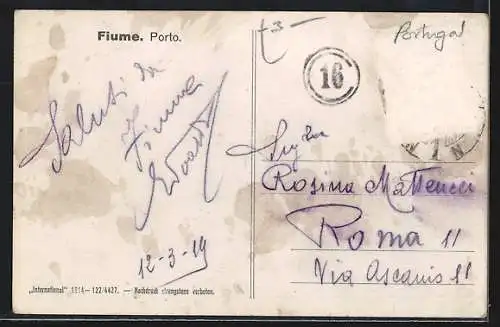 Fiume. Porto.
Saluti da
Fiume
Edoardo
12-3-19
"International" 1914-122/4437. — Nachdruck strengstens verboten.
3
16
Portugal
Sig/ra
Rosina Matteucci
Roma 11
Via Ascanio 11